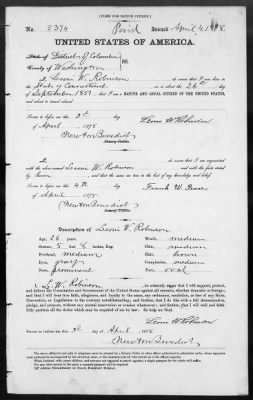 [FORM FOR NATIVE CITIZEN.]
No. 8374 Paid Issued April 4, 1878.
UNITED STATES OF AMERICA.
State of District of Columbia
County of Washington } SS.
I, Leoni W. Robinson, do swear that I was born in the
State of Connecticut on or about the 26 day of
September 1851, that I am a NATIVE AND LOYAL CITIZEN OF THE UNITED STATES,
and about to travel abroad.
Sworn to before me this 3d day
of April 1878 Leoni W Robinson
Notary Public.
I, am acquainted with the
above-named Leoni W Robinson and with the facts
stated by him, and that the same is true to the best of my knowledge and belief.
Sworn to before me this 4th day
of April 1878 Frank W.
Notary Public.
Description of Leoni W. Robinson
Age, 26 years Mouth, medium
Stature, 5 feet 8 inches, Eng. Chin, medium
Forehead, medium Hair, brown
Eyes, gray Complexion, medium
Nose, prominent Face, oval
I, L. W. Robinson, do solemnly swear that I will support, protect,
and defend the Constitution and Government of the United States against all enemies, whether domestic or foreign;
and that I will bear true faith, allegiance, and loyalty to the same, any ordinance, resolution, or law of any State,
Convention, or Legislature to the contrary notwithstanding; and further, that I do this with a full determination,
pledge, and purpose, without any mental reservation or evasion whatsoever; and further, that I will well and faith-
fully perform all the duties which may be required of me by law: So help me God.
Leoni W Robinson
Sworn to before me this 3d day of April 1878
Notary Public.